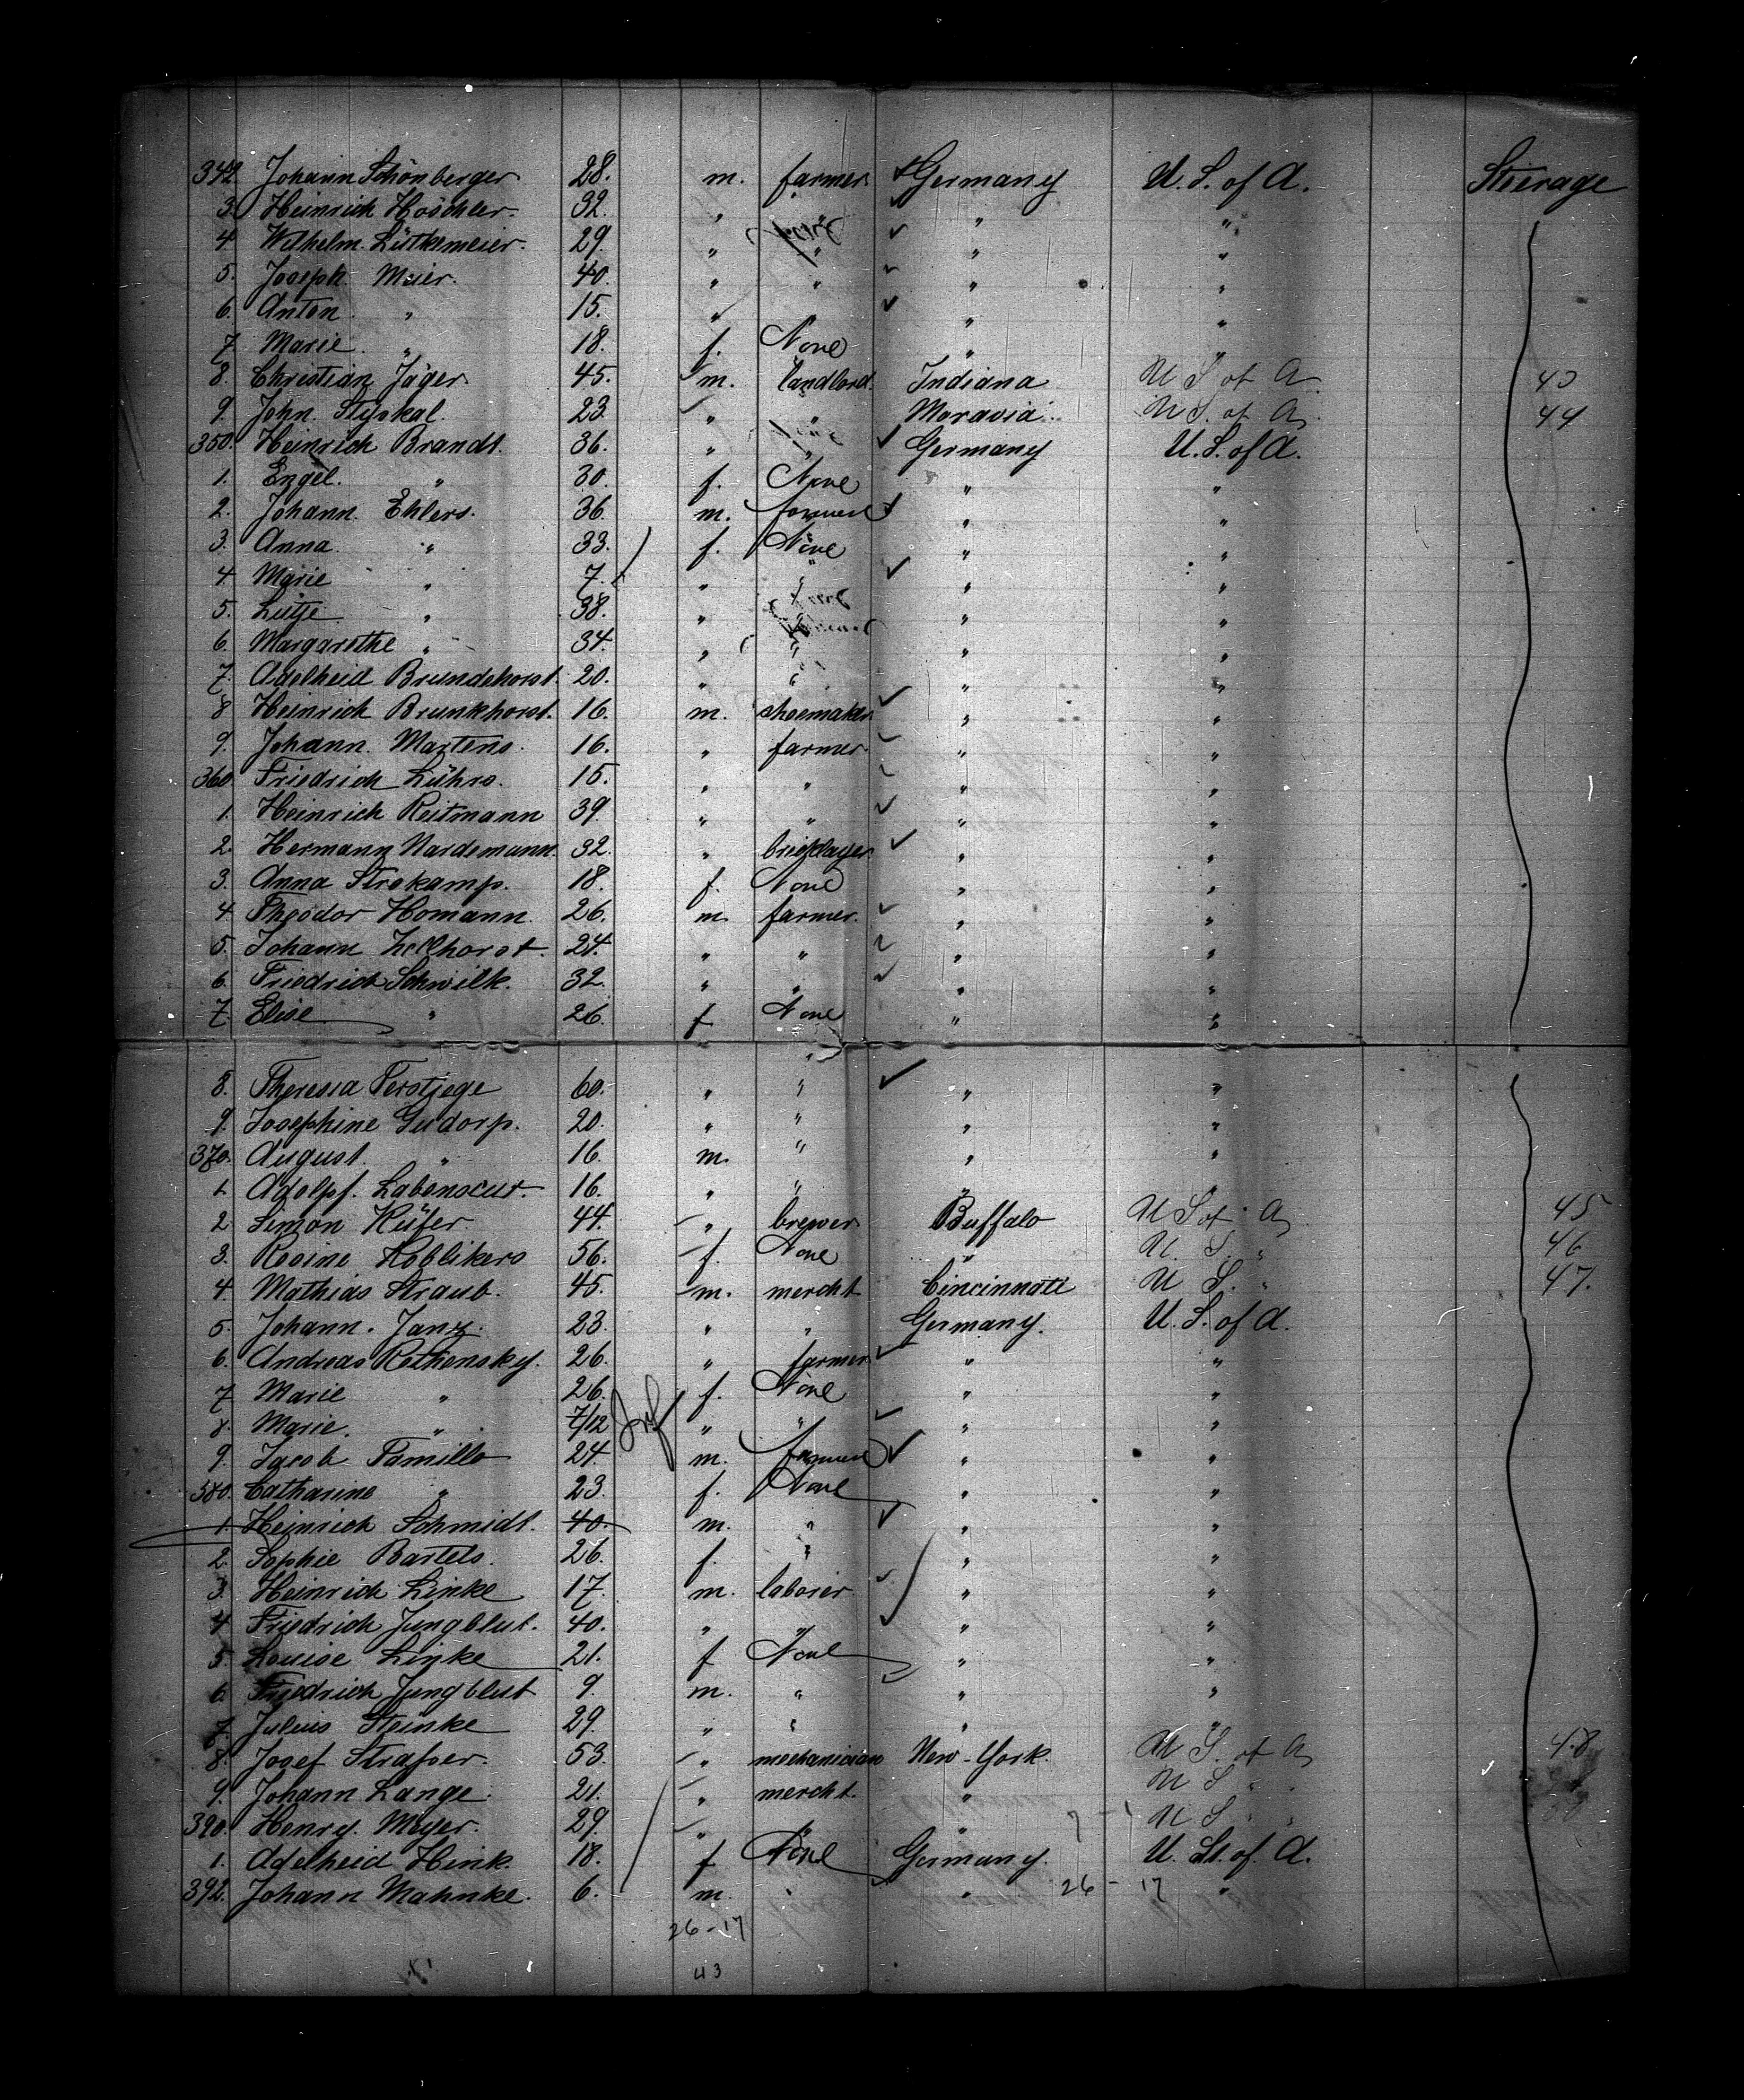 342 Johann Schönberger 28. m. farmer Germany U. S. of A. Steerage
3. Heinrich Höschler. 32. " " " "
4 Wilhelm Lütkemeier. 29. " " " "
5. Joseph Meier. 40. " " " "
6. Anton " 15. " " " "
7 Marie " 18. f. None " "
8. Christian Jäger 45. m. landlord Indiana U S of A 43
9. John Styskal 23 " " Moravia U S. of A 44
350. Heinrich Brandt. 36. " " Germany U. S. of A.
1. Engel. " 30. f. None " "
2. Johann Ehlers. 36. m. farmer " "
3. Anna " 33. f. None " "
4. Marie " 7. " " " "
5. Lütje " 38. " " "
6. Margarethe " 34. " " " "
7. Adelheid Brundehorst. 20. " " " "
8 Heinrich Brunkhorst. 16. m. shoemaker " "
9. Johann Martens. 16. " farmer " "
360 Friedrich Lührs. 15. " " " "
1. Heinrich Reitmann 39. " " " "
2. Hermann Nardemann. 32. " bricklayer " "
3. Anna Strokamp. 18. f. None " "
4 Theodor Homann. 26. m. farmer. " "
5. Johann 24. " " " "
6. Friedrich Schwilk. 32. " " " "
7. Elise " 26. f None " "
8. Theresia 60. " " " "
9. Josephine Gudorp. 20. " " " "
370. August " 16. m. " " "
1. Adolpf. 16. " " " "
2 Simon Küfer 44. " brewer Buffalo U S of A 45
3. Rosine 56. f. None " U. S. " 46
4 Mathias Straub. 45. m. mercht Cincinnati U S. " 47.
5. Johann. Janz. 23. " " Germany. U. S. of A.
6. Andreas Rothensky. 26. " farmer " "
7 Marie " 26. f. None " "
8. Marie. " 7/12 " " " "
9. Jacob Tomillo 24. m. farmer " "
380. Catharine " 23. f. None " "
1. Heinrich Schmidt. 40. m. " " "
2. Sophie Bartels. 26. f. " " "
3. Heinrich Linke 17. m. laborer " "
4 Friedrich Jungblut. 40. " " " "
5. Louise Linke 21. f None " "
6. Friedrich Jungblut 9. m. " " "
7. Julius Steinke 29. " " " "
8. Josef Strasser. 53. " mechanician New-York. U S. of A 48
9. Johann Lange. 21. " mercht. " U S " "
390. Henry. Meyer. 29. " " " U S " "
1. Adelheid Hink. 18. f None Germany. U. St. of. A.
392. Johann Mahnke. 6. m. " " 26 - 17 "
26-17
43